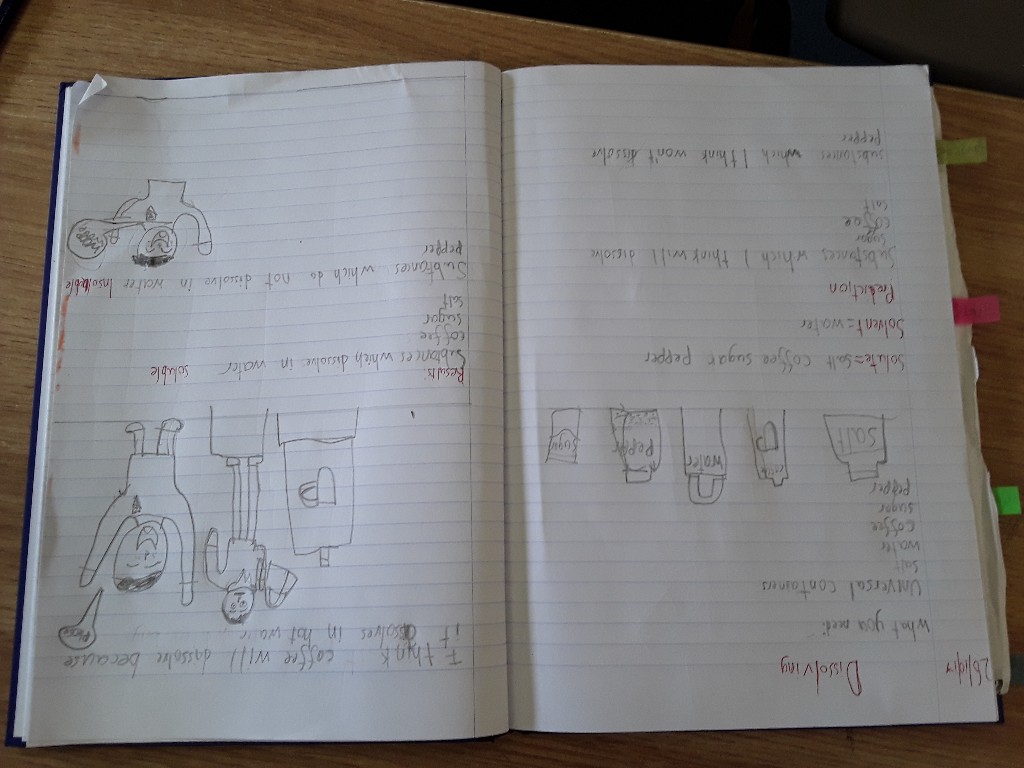 Dissolving
What you need:
Universal containers
salt
water
coffee
sugar
pepper
Salt
water
Pepper
sugar
Solute=salt coffee sugar pepper
Solvent=water
Prediction
Substances which I think will dissolve
sugar
coffee
salt
substances which I think won't dissolve
pepper
I think coffee will dissolve because
it dissolves in hot
Results:
Substances which dissolve in water soluble
coffee
sugar
salt
Substances which do not dissolve in water Insoluble
pepper